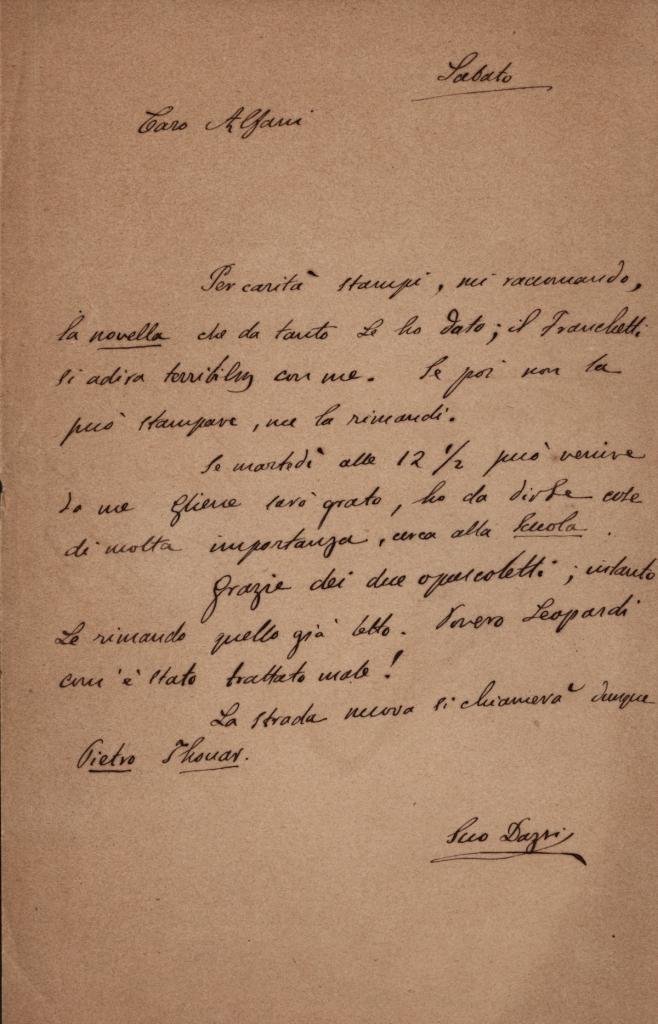 Sabato
Caro Alfani
Per carità stampi, mi raccomando,
la novella che da tanto Le ho dato; il Franchetti
si adira terribilm con me. Se poi non la
può stampare, me la rimandi.
Se martedì alle 12 1/2 può venire
da me gliene sarò grato, ho da dirLe cose
di molta importanza, circa alla Scuola.
Grazie dei due opuscoletti; intanto
Le rimando quello già letto. Povero Leopardi
com'è stato trattato male!
La strada nuova si chiamerà dunque
Pietro Thouar.
Suo Dazzi